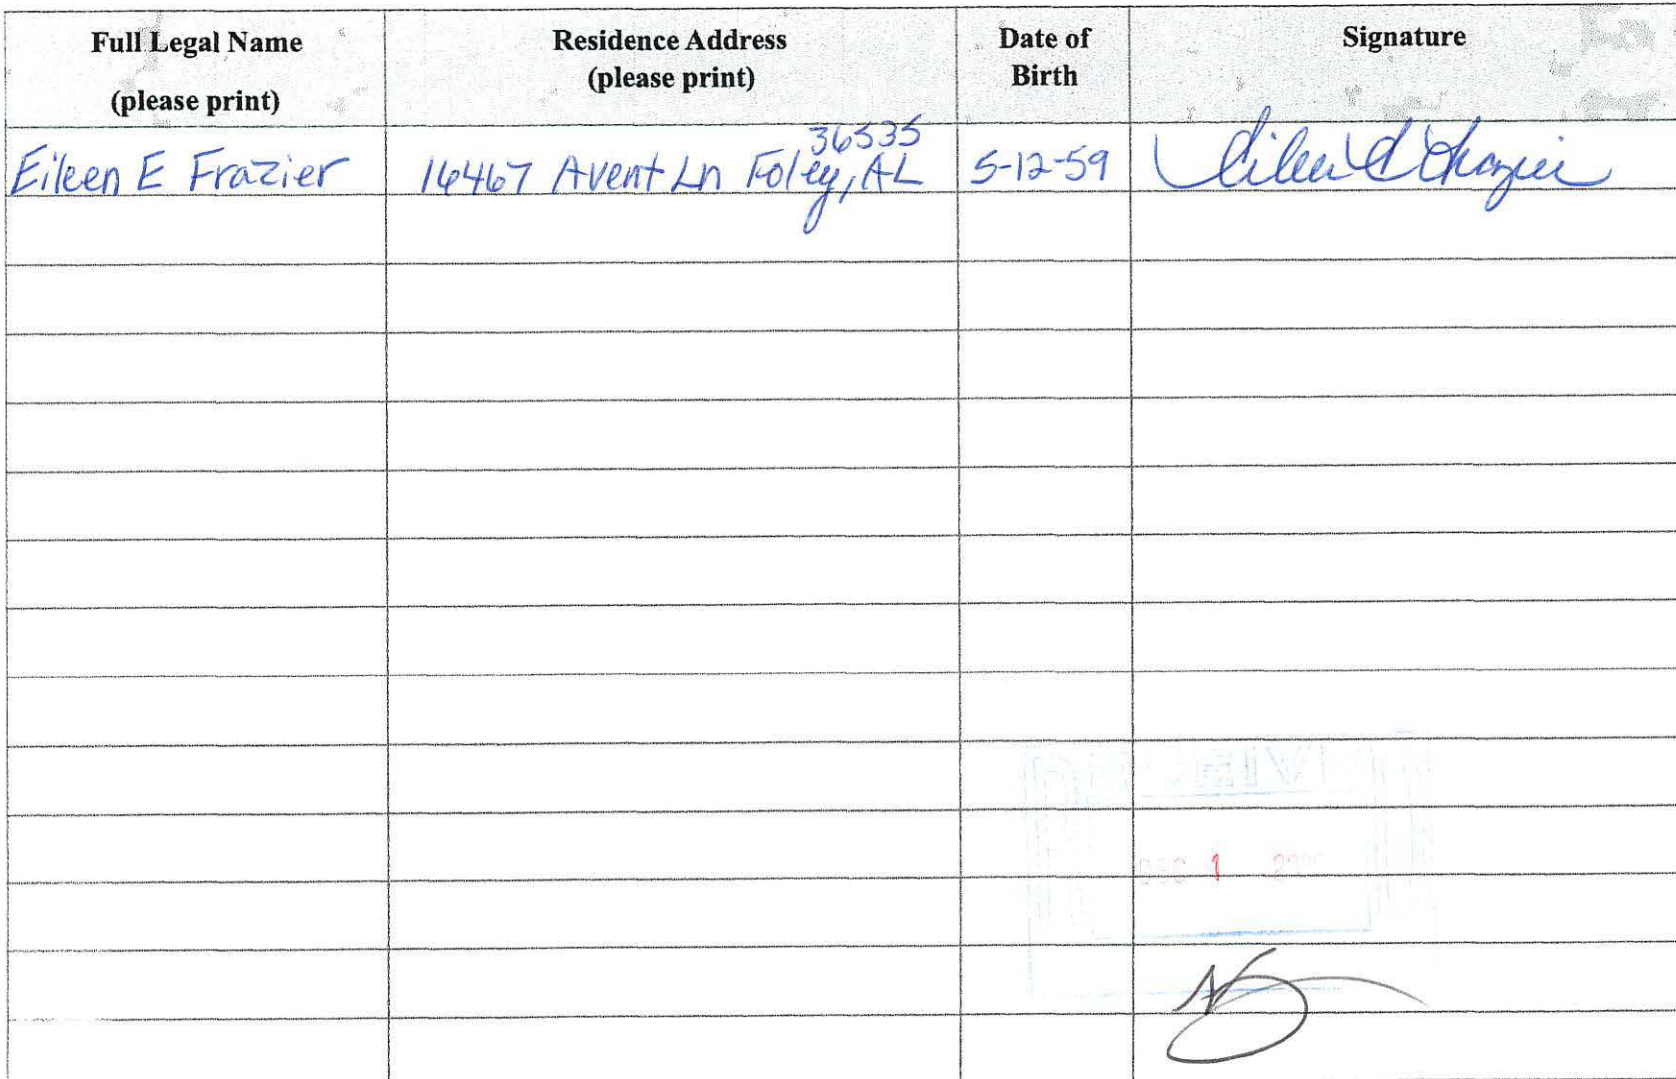 Full Legal Name
(please print)
Residence Address
(please print)
Date of
Birth
Signature
Eileen E Frazier
16467 Avent Ln Foley, AL
36535
5-12-59
Eileen E Frazier
DEC 1